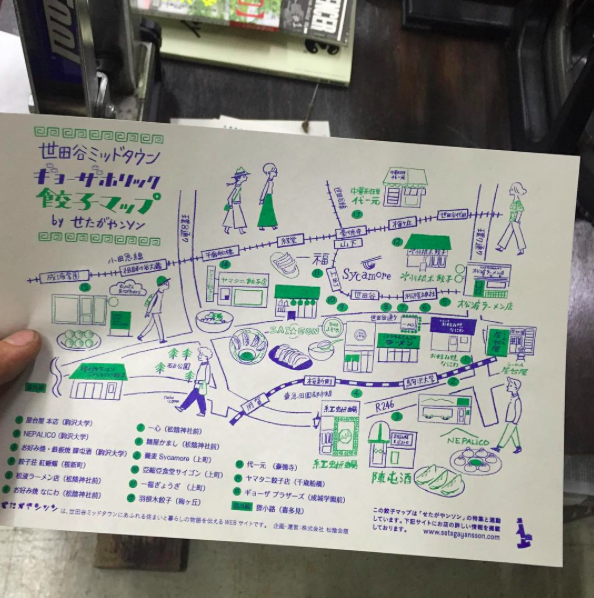 世田谷ミッドタウン
ギョーザホリック
餃子マップ
by せたがヤンソン
小田急線
成城学園前
千歳船橋
経堂
豪徳寺
山下
梅ヶ丘
世田谷代田
環八通り
中華料理
代一元
ヤマタニ餃子店
一福
Sycamore
上町
世田谷
松陰神社前
羽根木餃子
松波ラーメン店
SAIGON
世田谷通り
ラーメン
お好み焼
なにわ
屋台屋
砧公園
用賀
桜新町
駒沢大学
東急田園都市線
R246
紅虹餅
陣屯酒
NEPALICO
屋台屋 本店（駒沢大学）
NEPALICO（駒沢大学）
お好み焼・鉄板焼 陣屯酒（駒沢大学）
餃子荘 紅蜥蜴（桜新町）
松波ラーメン店（松陰神社前）
お好み焼 なにわ（松陰神社前）
一心（松陰神社前）
麺屋かまし（松陰神社前）
蕎麦 Sycamore（上町）
亞細亞食堂サイゴン（上町）
一福ぎょうざ（上町）
羽根木餃子（梅ヶ丘）
代一元（豪徳寺）
ヤマタニ餃子店（千歳船橋）
ギョーザ ブラザーズ（成城学園前）
雲小路（喜多見）
せたがヤンソン は、世田谷ミッドタウンにあふれる佇まいと暮らしの物語を伝えるWEBサイトです。 企画・運営：株式会社 松陰会舘
この餃子マップは「せたがヤンソン」の特集と連動
しています。下記サイトにお店の詳しい情報を掲載
しております。
www.setagayansson.com